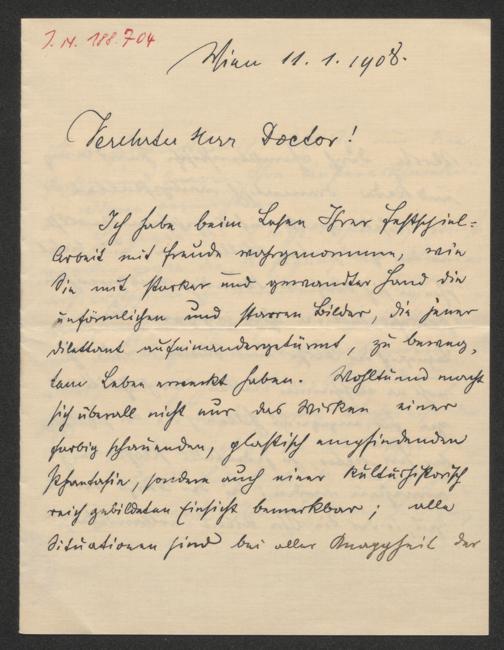 J. N. 188.704
Wien 11. 1. 1908.
Verehrter Herr Doctor!
Ich habe beim Lesen Ihrer Festspiel-
Arbeit mit Freude wahrgenommen, wie
Sie mit starker und gewandter Hand die
unförmlichen und starren Bilder, die jener
Dilettant aufeinandergetürmt, zu beweg-
tem Leben erweckt haben. Wohltuend macht
sich überall nicht nur das Wirken einer
farbig schauenden, plastisch empfindenden
Phantasie, sondern auch einer kulturhistorisch
reich gebildeten Einsicht bemerkbar; alle
Situationen sind bei aller Knappheit der